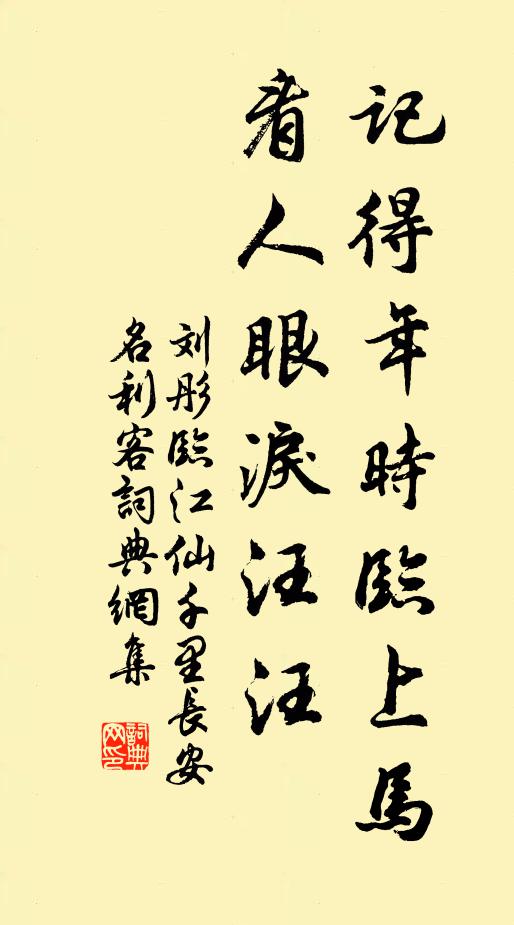 記得年時臨上馬
看人眼淚汪汪
刘彤臨江仙千里長安
名利客詞典網集
詞典网印